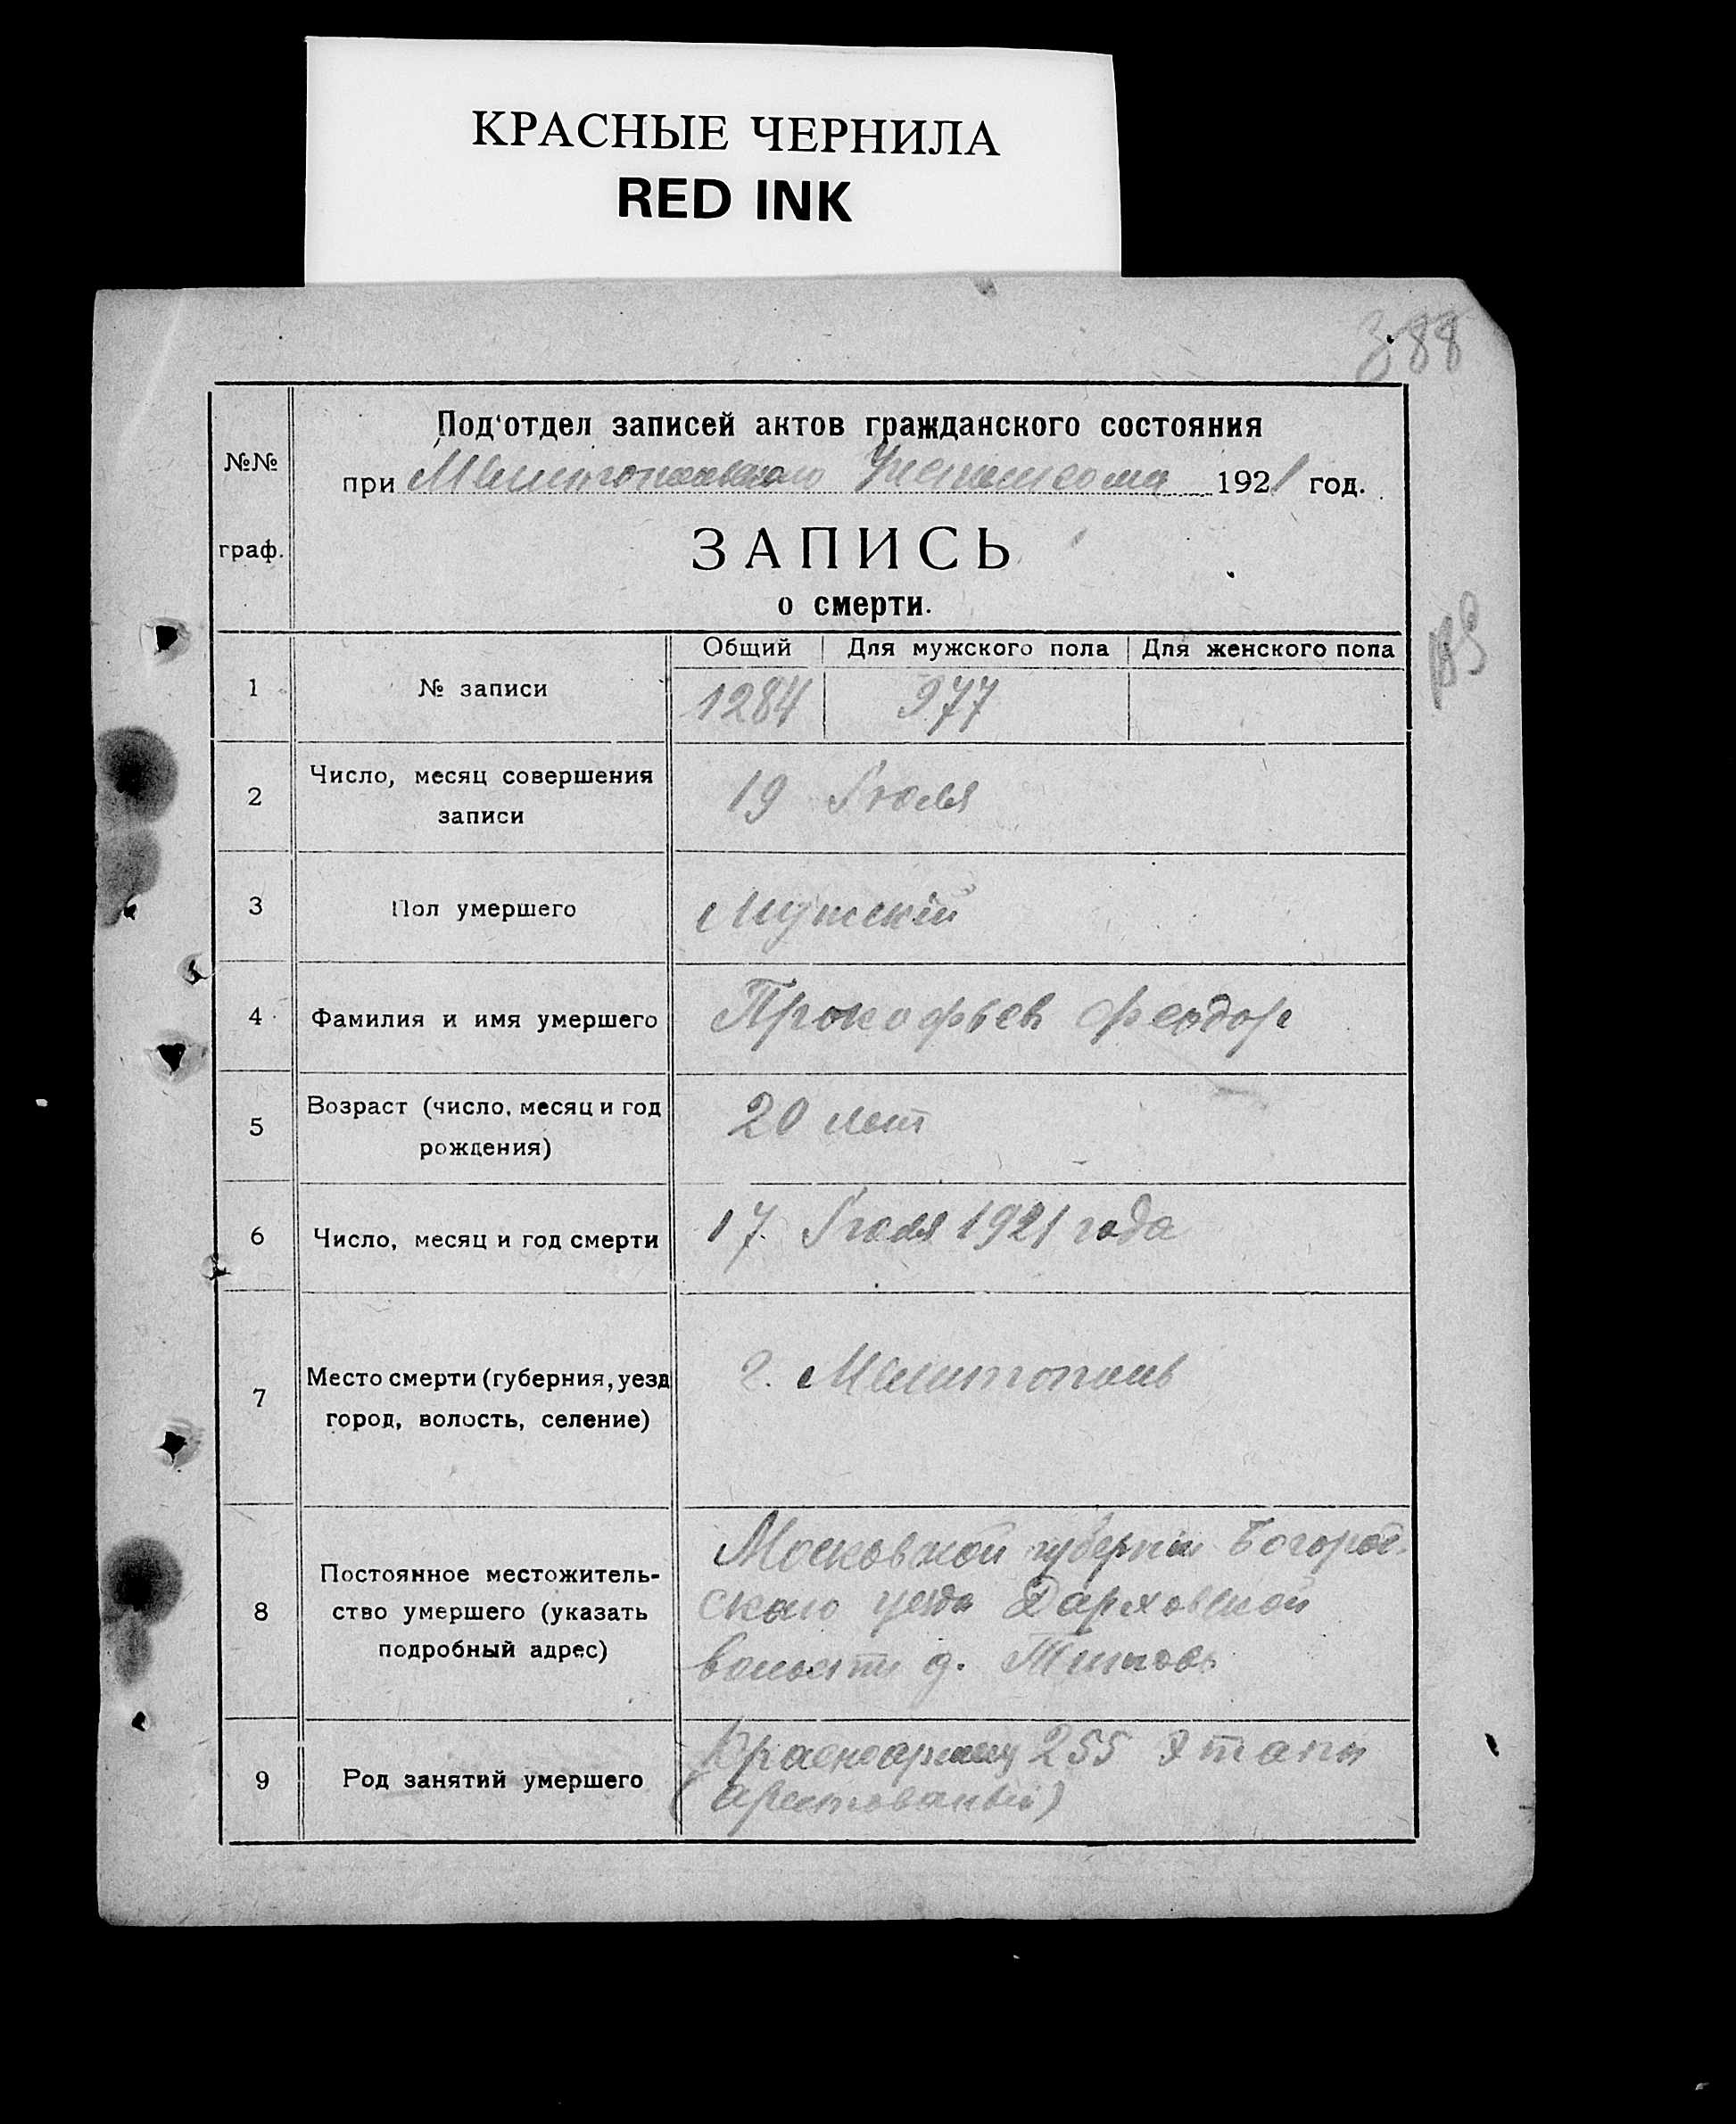 КРАСНЫЕ ЧЕРНИЛА
RED INK
388
Под'отдел записей актов гражданского состояния
№№
при Мелитопольском 1921 год.
граф.
ЗАПИСЬ
о смерти.
Общий Для мужского пола Для женского пола
1 № записи 1284 977
2 Число, месяц совершения
записи
19 Июля
3 Пол умершего Мужской
4 Фамилия и имя умершего Прокофьев Феодор
5 Возраст (число, месяц и год
рождения)
20 лет
6 Число, месяц и год смерти 17 Июля 1921 года
7 Место смерти (губерния, уезд
город, волость, селение)
г. Мелитополь
8 Постоянное местожитель-
ство умершего (указать
подробный адрес)
Московской губернии Богород-
скаго уезда
волости д.
9 Род занятий умершего
Красноармеец 255 Этапн
(арестованый)